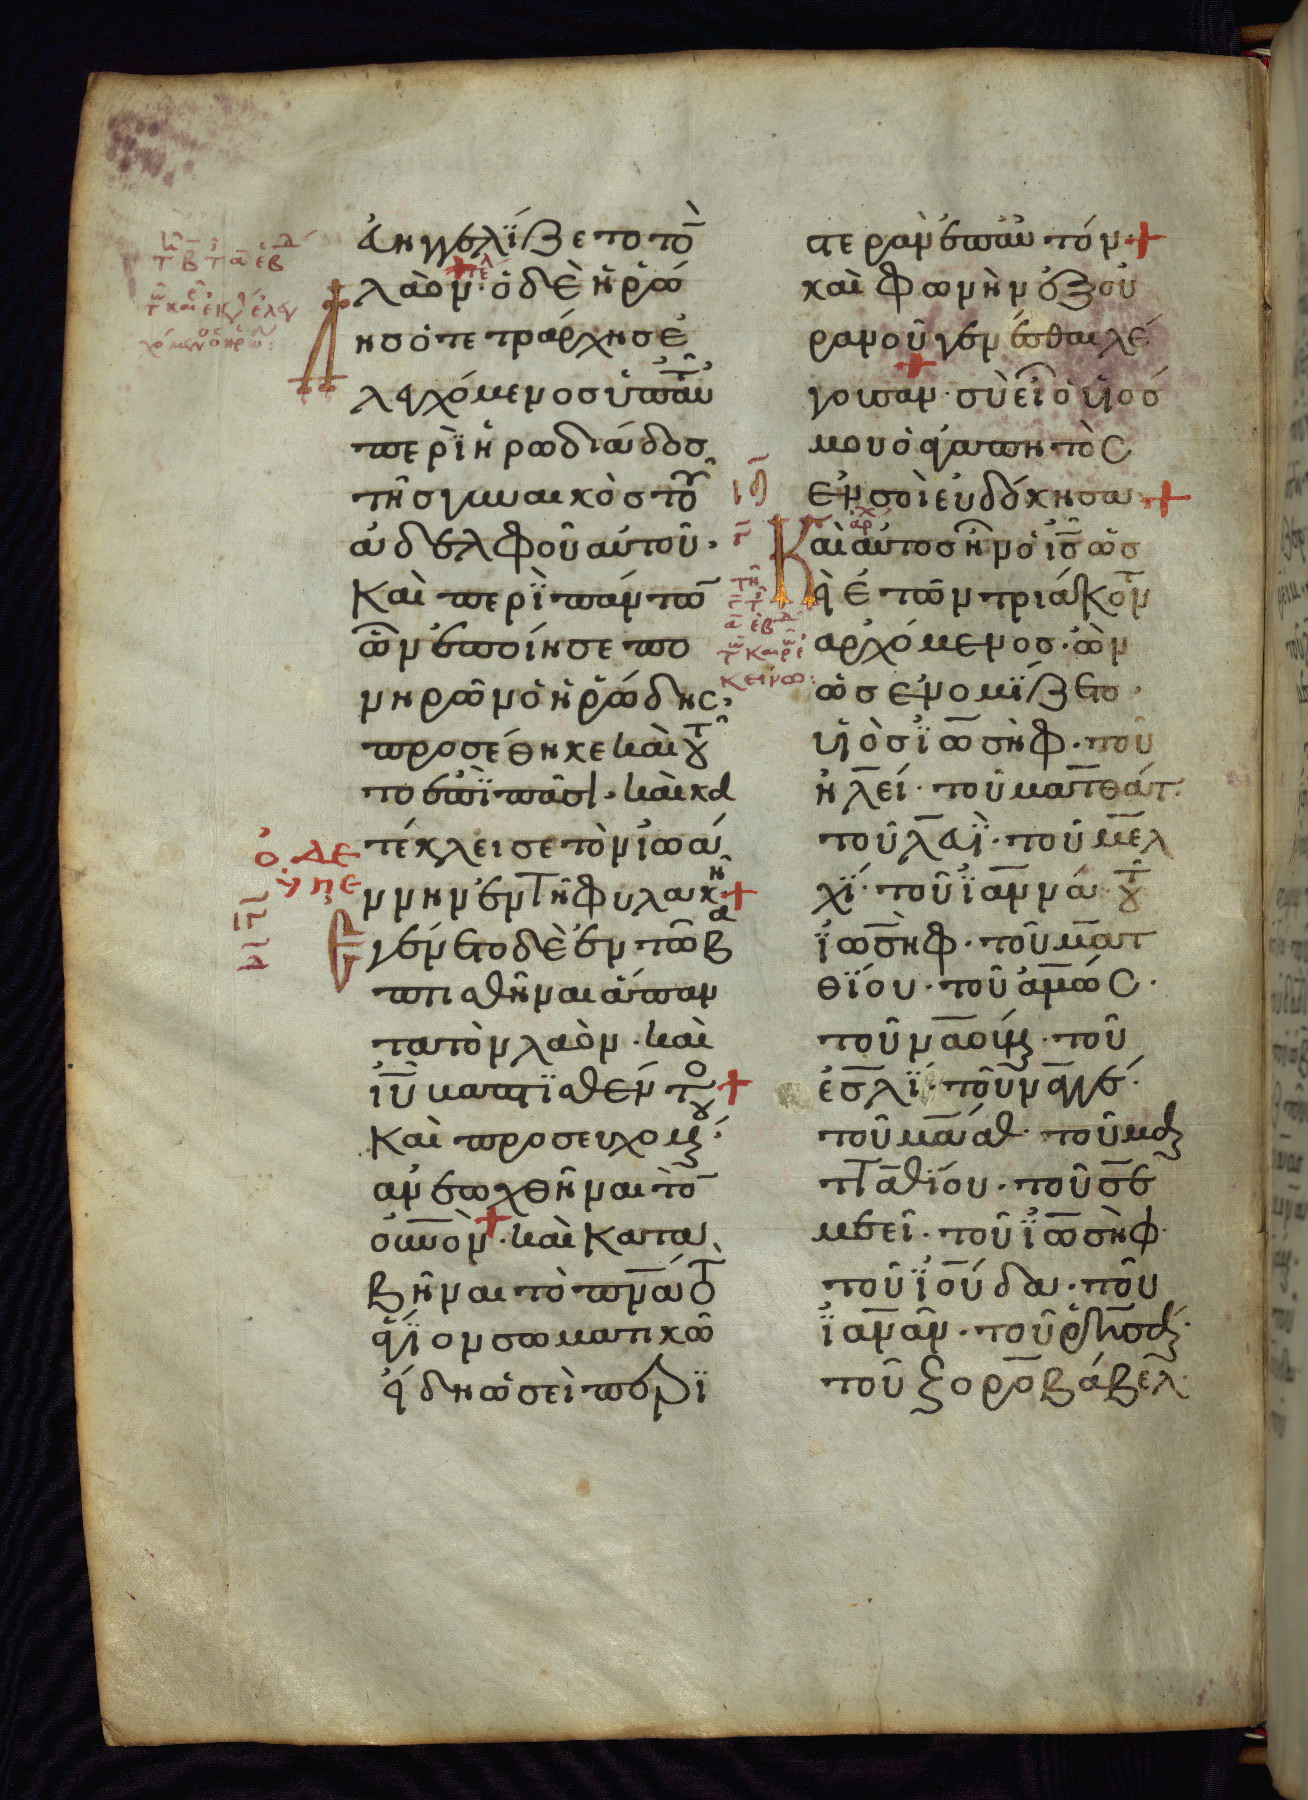 ἀηγγελΐζετο τὸ
λαόν· ὁ δὲ ἡρώ
ησ ὁ τετράρχησ ἐ
λεγχόμενοσ ὑπ αυτ
περὶ ἡρωδιάδοσ
τῆσ γυναικὸσ τοῦ
ἀδελφοῦ αὐτοῦ·
Καὶ περὶ πάντω
ὧν ἐποίησε πο
νηρῶν ὁ ἡρώδησ·
προσέθηκε καὶ τοῦ
το ἐπῒ πᾶσι· καὶ κα
τέκλεισε τὸν ἰωά
ννην ἐν τῆ φυλακῆ +
Ἐγένετο δὲ ἐν τῶ βα
πτισθῆναι ἅπαν
τα τὸν λαὸν· καὶ
ἰῦ βαπτϊσθέντο +
Καὶ προσευχομένου·
ἀνεωχθῆναι τὸ
οὐνὸν· καὶ κατα
βῆναι τὸ πνᾶ τὸ
ἅγϊον σωματικῶ
εἴδη ὡσεὶ περϊ
στεράν ἐπ αὐτόν +
καὶ φωνὴν ἐξ οὐ
ρανοῦ γενέσθαι λέ
γουσαν· σὺ εἶ ὁ υἱόσ
μου ὁ ἀγαπητὸσ
ἐν σοὶ εὐδόκησα +
Καὶ αὐτοσ ἦν ὁ ισ ὡσ
εὶ ἐτῶν τριάκοντ
ἀρχόμενοσ· ὢν
ὡσ ἐνομΐζετο·
υἱὸσ ϊωσὴφ· τοῦ
ἡλεί· τοῦ ματθάτ·
τοῦ λευΐ· τοῦ μελ
χΐ· τοῦ ϊαννά· τοῦ
ϊωσὴφ· τοῦ ματ
θΐου· τοῦ ἀμώσ·
τοῦ ναούμ· τοῦ
ἐσλΐ· τοῦ ναγγέ·
τοῦ μαάθ· τοῦ μα
τταθΐου· τοῦ σε
μεεῒ· τοῦ ϊωσὴφ·
τοῦ ϊούδα· τοῦ
ϊανᾶν· τοῦ ῥησά·
τοῦ ζοροβάβελ·
ὁ δε
ηρε